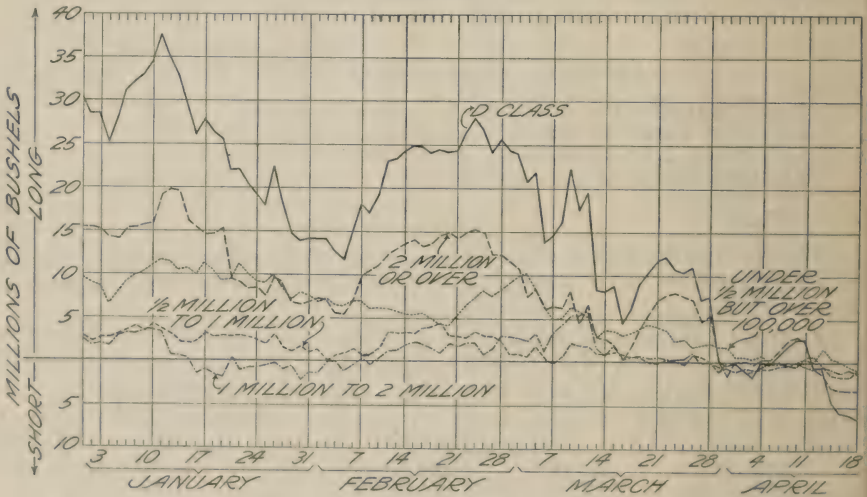 MILLIONS OF BUSHELS
←SHORT— —LONG→
40
35
30
25
20
15
10
5
5
10
D CLASS
2 MILLION
OR OVER
1/2 MILLION
TO 1 MILLION
1 MILLION TO 2 MILLION
UNDER
1/2 MILLION
BUT OVER
100,000
3 10 17 24 31 7 14 21 28 7 14 21 28 4 11 18
JANUARY FEBRUARY MARCH APRIL